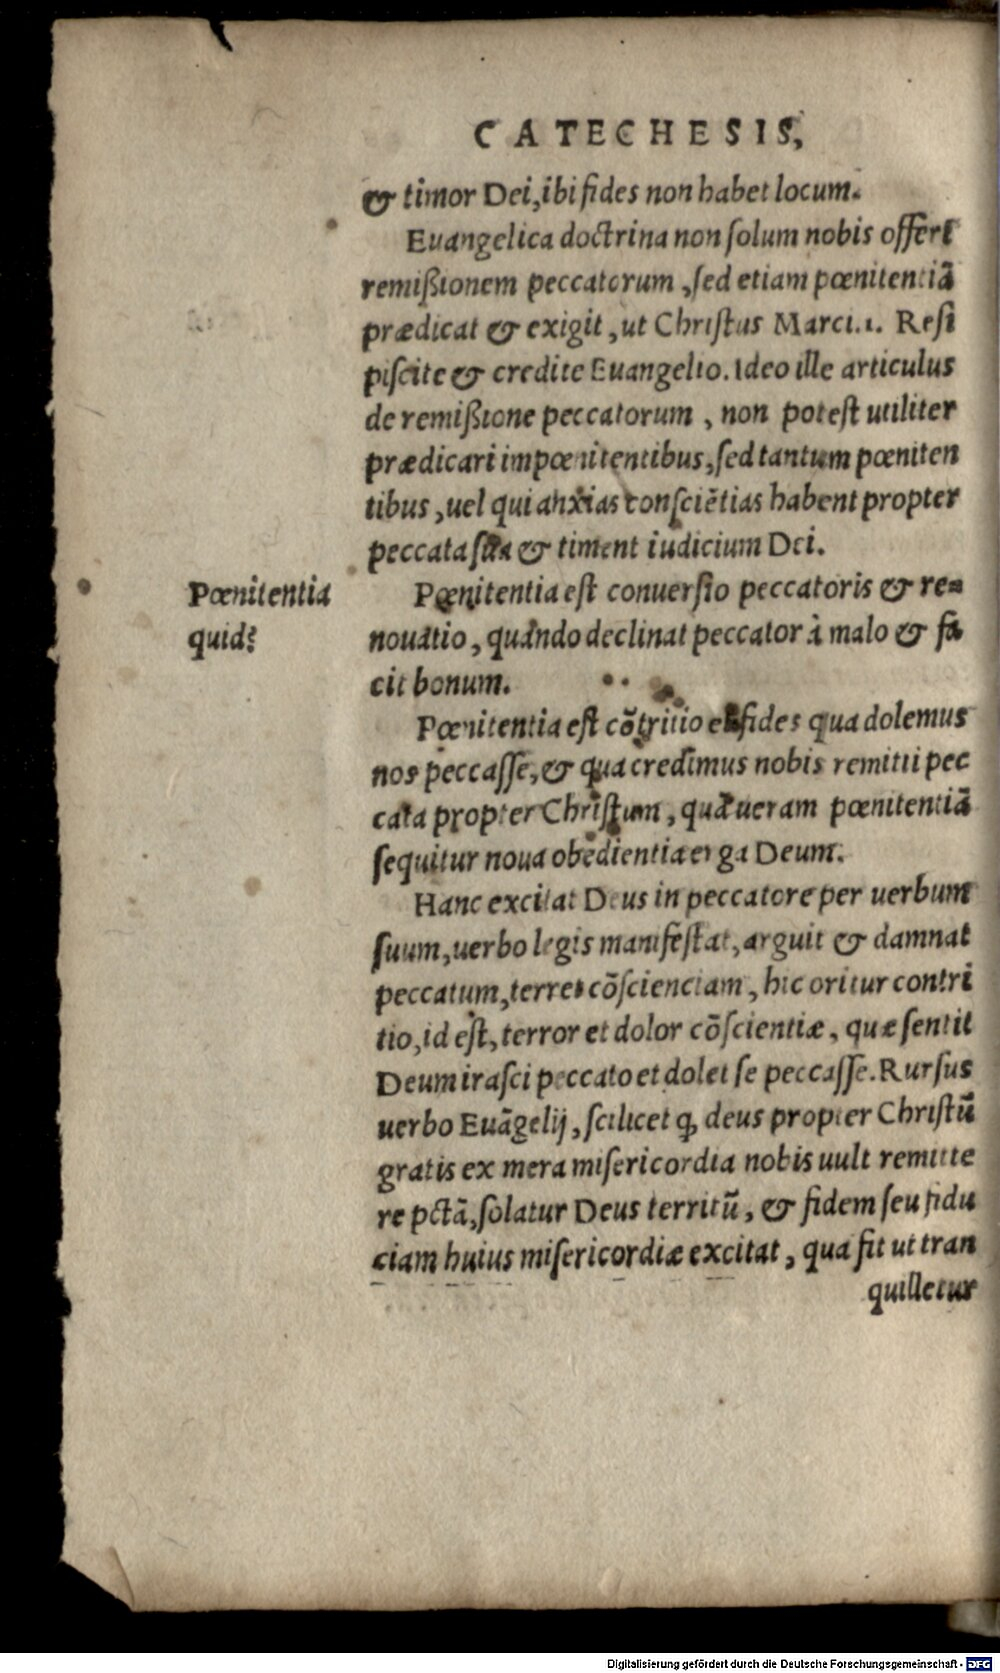 CATECHESIS,
& timor Dei, ibi fides non habet locum.
Euangelica doctrina non ſolum nobis offert
remißionem peccatorum, ſed etiam pœnitentiā
prædicat & exigit, ut Chriſtus Marci. 1. Reſi
piſcite & credite Euangelio. Ideo ille articulus
de remißione peccatorum, non poteſt utiliter
prædicari impœnitentibus, ſed tantum pœniten
tibus, uel qui anxias conſciētias habent propter
peccata ſua & timent iudicium Dei.
Pœnitentia
quid?
Pœnitentia eſt conuerſio peccatoris & re=
nouatio, quando declinat peccator à malo & fa
cit bonum.
Pœnitentia eſt cōtritio et fides qua dolemus
nos peccaſſe, & qua credimus nobis remitti pec
cata propter Chriſtum, quā ueram pœnitentiā
ſequitur noua obedientia erga Deum.
Hanc excitat Deus in peccatore per uerbum
ſuum, uerbo legis manifeſtat, arguit & damnat
peccatum, terret cōſcienciam, hic oritur contri
tio, id eſt, terror et dolor cōſcientiæ, quæ ſentit
Deum iraſci peccato et dolet ſe peccaſſe. Rurſus
uerbo Euāgelij, ſcilicet ꝙ deus propter Chriſtū
gratis ex mera miſericordia nobis uult remitte
re pctā, ſolatur Deus territū, & fidem ſeu fidu
ciam huius miſericordiæ excitat, qua fit ut tran
quilletur
Digitalisierung gefördert durch die Deutsche Forschungsgemeinschaft - DFG